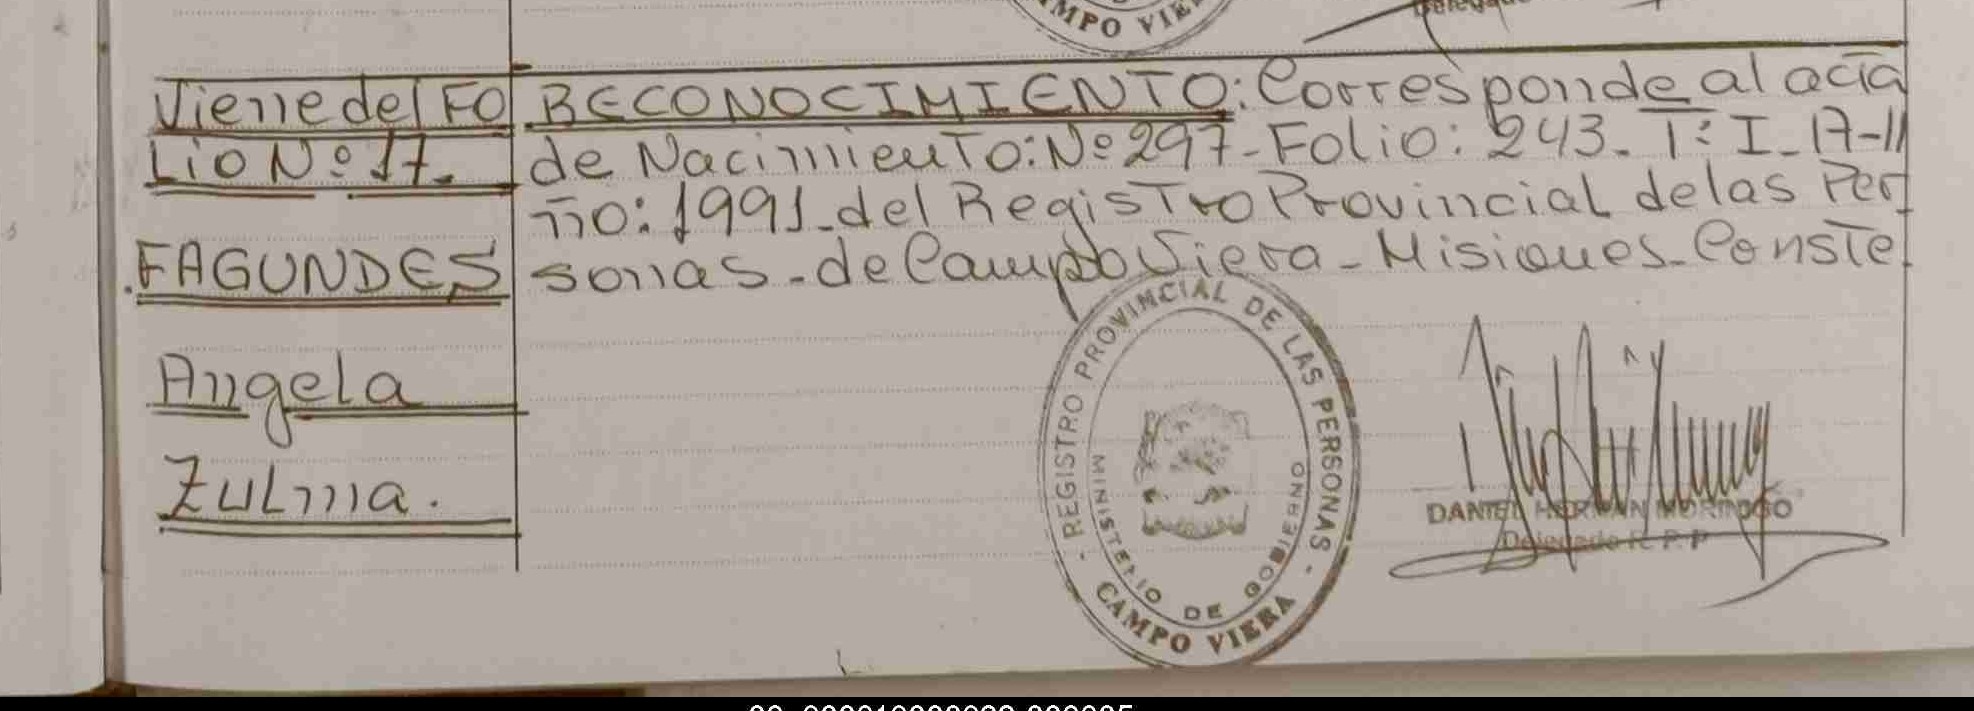 CAMPO VIE
Delegado
Viene del FO
LIO Nº 17.
FAGUNDES
Angela
Zulma.
RECONOCIMIENTO: Corresponde al acta
de Nacimiento: Nº 297 - Folio: 243. Tº I - 17-11
ño: 1991 - del Registro Provincial de las Per
sonas - de Campo Viera - Misiones. Conste
- REGISTRO PROVINCIAL DE LAS PERSONAS -
MINISTERIO DE GOBIERNO
CAMPO VIERA
DANIEL HERNAN MORINIGO
Delegado R. P. P